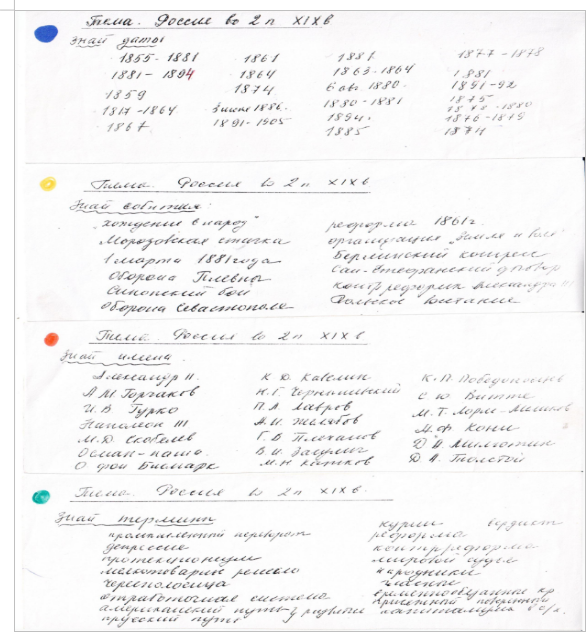 Тема. Россия во 2 п XIX в
Знай даты
1855-1881 1861 1881 1877-1878
1881-1894 1864 1863-1864 1881
1859 1874 6 авг. 1880. 1891-92
1817-1864 3 июня 1886. 1880-1881 1875
1867 1891-1905 1894. 1878-1880
1885 1876-1879
1874
Тема. Россия во 2 п XIX в
Знай события:
"хождение в народ" реформа 1861 г.
Морозовская стачка организация "Земля и воля"
1 марта 1881 года Берлинский конгресс
Оборона Плевны Сан-Стефанский договор
Синопский бой контрреформы Александра III
Оборона Севастополя Польское восстание
Тема. Россия во 2 п XIX в
Знай имена
Александр II. К. Д. Кавелин К. П. Победоносцев
А М Горчаков Н. Г. Чернышевский С Ю Витте
И. В. Гурко П. Л. Лавров М. Т. Лорис-Меликов
Наполеон III А. И. Желябов А. Ф Кони
М. Д. Скобелев Г. В Плеханов Д. А. Милютин
Осман-паша В. И Засулич Д. А. Толстой
О фон Бисмарк М. Н Катков
Тема. Россия во 2 п XIX в.
Знай термины
промышленный переворот курии вердикт
депрессия реформа
протекционизм контрреформа
мелкотоварн ремесло мировой судья
чересполосица народники
отработочная система гласные
американский путь временнообязанные кр
прусский путь присяжный поверенный